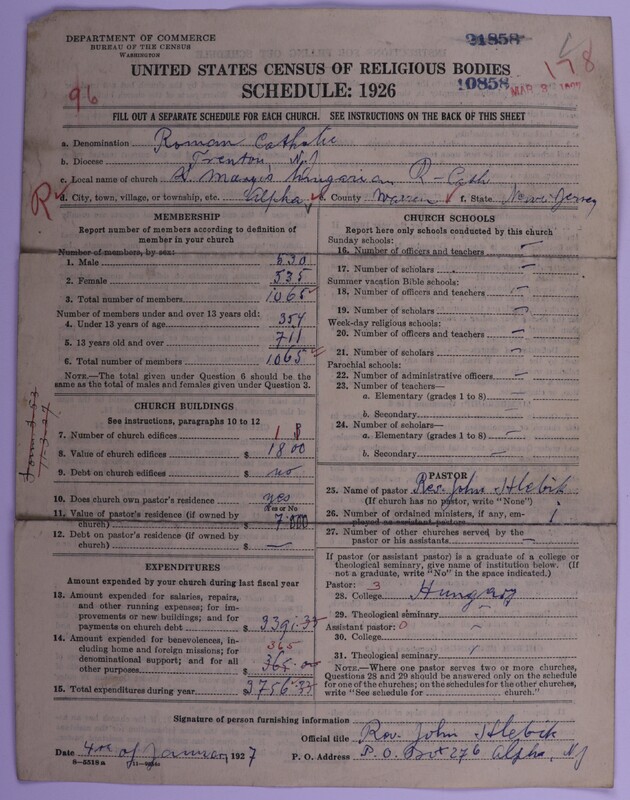 DEPARTMENT OF COMMERCE
BUREAU OF THE CENSUS
WASHINGTON
21858
178
UNITED STATES CENSUS OF RELIGIOUS BODIES
SCHEDULE: 1926
10858
96
FILL OUT A SEPARATE SCHEDULE FOR EACH CHURCH. SEE INSTRUCTIONS ON THE BACK OF THIS SHEET
a. Denomination Roman Catholic
b. Diocese Trenton, N.J
c. Local name of church St Marys Hungarian R-Cath
R d. City, town, village, or township, etc. Alpha e. County Warren f. State New-Jersey
MEMBERSHIP
Report number of members according to definition of
member in your church
Number of members, by sex:
1. Male 530
2. Female 535
3. Total number of members 1065
Number of members under and over 13 years old:
4. Under 13 years of age 354
5. 13 years old and over 711
6. Total number of members 1065
NOTE.—The total given under Question 6 should be
same as the total of males and females given under Question 3.
CHURCH BUILDINGS
See instructions, paragraphs 10 to 12
7. Number of church edifices 1
8. Value of church edifices $
9. Debt on church edifices $ no
10. Does church own pastor's residence yes
Yes or No
11. Value of pastor's residence (if owned by
church) $ 7.000
12. Debt on pastor's residence (if owned by
church) $ —
EXPENDITURES
Amount expended by your church during last fiscal year
13. Amount expended for salaries, repairs,
and other running expenses; for im-
provements or new buildings; and for
payments on church debt $ 3391.32
14. Amount expended for benevolences, in-
cluding home and foreign missions; for
denominational support; and for all
other purposes $ 365.00
365
15. Total expenditures during year $ 3756.32
CHURCH SCHOOLS
Report here only schools conducted by this church
Sunday schools:
16. Number of officers and teachers —
17. Number of scholars —
Summer vacation Bible schools:
18. Number of officers and teachers —
19. Number of scholars —
Week-day religious schools:
20. Number of officers and teachers —
21. Number of scholars —
Parochial schools:
22. Number of administrative officers —
23. Number of teachers—
a. Elementary (grades 1 to 8) —
b. Secondary —
24. Number of scholars—
a. Elementary (grades 1 to 8) —
b. Secondary —
PASTOR
25. Name of pastor Rev. John Hlebik
(If church has no pastor, write "None")
26. Number of ordained ministers, if any, em-
ployed as assistant pastors
27. Number of other churches served by the
pastor or his assistants —
If pastor (or assistant pastor) is a graduate of a college or
theological seminary, give name of institution below. (If
not a graduate, write "No" in the space indicated.)
Pastor: 3
28. College Hungary
29. Theological seminary
Assistant pastor: 0
30. College —
31. Theological seminary
NOTE.—Where one pastor serves two or more churches,
Questions 28 and 29 should be answered only on the schedule
for one of the churches; on the schedules for the other churches,
write "See schedule for church."
Signature of person furnishing information
Official title Rev. John Hlebik
Date 4 of January, 1927 P. O. Address P.O. Box 276 Alpha, NJ
8—5518a